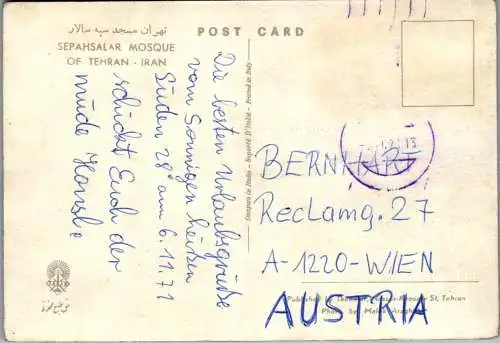 تهران مسجد سپه سالار
SEPAHSALAR MOSQUE
OF TEHRAN - IRAN
POST CARD
Die besten Urlaubsgrüße
vom Sonnigen heißen
Süden 28° am 6.11.71
schickt Euch der
müde Hansl.
Stampato in Italia - Importé D'Italie - Printed in Italy
BERNHART
Reclamg. 27
A-1220-WIEN
AUSTRIA
Published by St, Tehran
Photo by